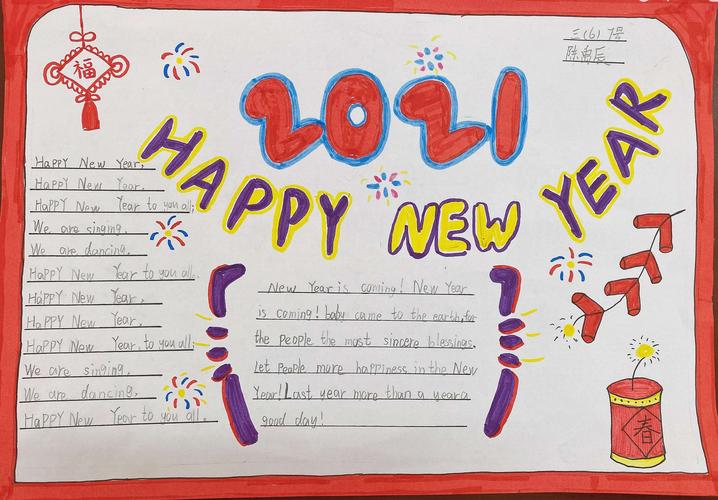 三(6) 7号
陈奥辰
福
2021
HAPPY NEW YEAR
Happy New Year,
Happy New Year.
Happy New Year to you all;
We are singing.
We are dancing.
Happy New Year to you all.
Happy New Year,
Happy New Year,
Happy New Year, to you all;
We are singing.
We are dancing.
Happy New Year to you all.
New Year is coming! New Year
is coming! baby came to the earth, for
the people the most sincere blessings.
Let people more happiness in the New
Year! Last year more than a year a
good day!
春